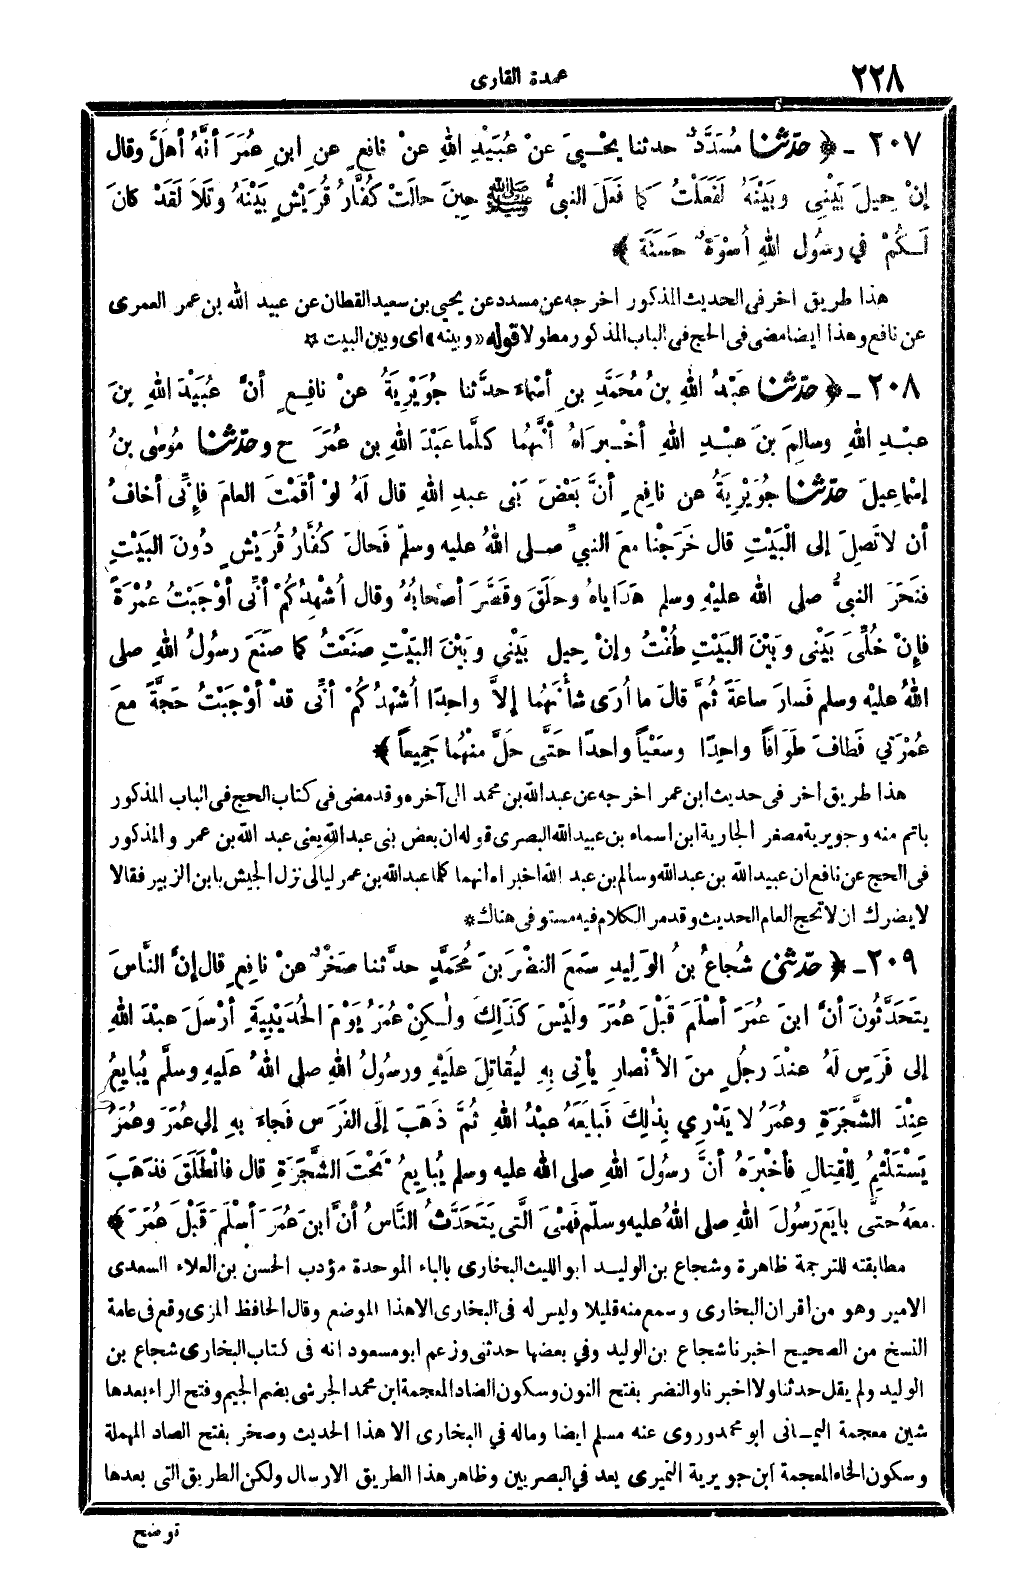 ٢٢٨
عمدة القارى
٢٠٧ - ﴿ حدّثنا مُسَدَّدٌ حدثنا يَحْيىَ عَنْ عُبَيْدِ اللهِ عَنْ نافِعٍ عنِ ابنِ عُمَرَ أنَّهُ أهَلَّ وقال
إنْ حِيلَ بَيْنِى وبَيْنَهُ لَفَعَلْتُ كما فَعَلَ النبىُّ ﷺ حِينَ حالَتْ كُفَّارُ قُرَيْشٍ بَيْنَهُ وتَلاَ لَقَدْ كانَ
لَـكُمْ في رسُولِ اللهِ أُسْوَةٌ حَسَنَة ﴾
هذا طريق اخر فى الحديث المذكور اخرجه عن مسدد عن يحيى بن سعيد القطان عن عبيد الله بن عمر العمرى
عن نافع وهذا ايضا مضى فى الحج فى الباب المذكور مطولا قوله «وبينه» اى وبين البيت ☆
٢٠٨ - ﴿ حدّثنا عَبْدُ اللهِ بنُ مُحَمَّدِ بنِ أسْماءَ حدَّثنا جُوَيْرِيَةُ عنْ نافِعٍ أنَّ عُبَيْدَ اللهِ بنَ
عبْدِ اللهِ وسالِمَ بنَ عبْدِ اللهِ أخْـبراهُ أنَّهُما كلَّما عَبْدَ اللهِ بن عُمَرَ ح وحدّثنا مُوسٰى بنُ
إسْماعِيلَ حدّثنا جُوَيْرِيَةُ عن نافِعٍ أنَّ بَعْضَ بَنِى عبدِ اللهِ قال لَهُ لوْ أقَمْتَ العامَ فإنِّى أخافُ
أن لاتَصِلَ إلى الْبَيْتِ قال خَرَجْنا معَ النبىِّ صـلى اللهُ عليه وسلّم فَحالَ كُفَّارُ قُرَيْشٍ دُونَ البَيْتِ
فنَحَرَ النبىُّ صلى الله عليْهِ وسلم هَدَاياهُ وحلَقَ وقَصَّرَ أصْحابُهُ وقال أُشْهِدُكُمْ أنِّى أوْجَبْتُ عُمْرَةً
فإنْ خُلِّىَ بَيْنِى وبَيْنَ البَيْتِ طُفْتُ وإنْ حِيل بَيْنِي وبَيْنَ البَيْتِ صنَعْتُ كما صنَعَ رسُولُ اللهِ صلى
اللهُ عليْه وسلم فَسارَ ساعَةً ثُمَّ قالَ ما أُرَى شأْنَهُما إلاَّ واحِدًا أُشْهِدُكُمْ أنِّى قدْ أوْجَبْتُ حَجَّةً معَ
عُمْرَتي فَطافَ طَوَافاً واحِدًا وسَعْياً واحدًا حَتَّى حَلَّ منْهُما جَمِيعاً ﴾
هذا طريق اخر فى حديث ابن عمر اخرجه عن عبد الله بن محمد الى آخره وقد مضى فى كتاب الحج فى الباب المذكور
باتم منه وجويرية مصغر الجارية ابن اسماء بن عبيد الله البصرى قوله ان بعض بنى عبد الله يعنى عبد الله بن عمر والمذكور
فى الحج عن نافع ان عبيد الله بن عبد الله وسالم بن عبد الله اخبراه انهما كلما عبد الله بن عمر ليالى نزل الجيش بابن الزبير فقالا
لا يضرك ان لا تحج العام الحديث وقد مر الكلام فيه مستوفى هناك *
٢٠٩ - ﴿ حدّثنى شُجاعُ بنُ الوَلِيدِ سَمِعَ النضْرَ بنَ مُحَمَّدٍ حدَّثنا صَخْرٌ عنْ نافِعٍ قال إنَّ النَّاسَ
يتَحَدَّثُونَ أنَّ ابنَ عُمَرَ أسْلَمَ قَبْلَ عُمَرَ ولَيْسَ كَذَلِكَ ولٰـكِنْ عُمَرُ يَوْمَ الحُدَيْبِيَةِ أرْسَلَ عبْدَ اللهِ
إلى فَرَسٍ لَهُ عنْدَ رجُلٍ منَ الأنْصارِ يأتِى بِهِ لِيُقاتِلَ علَيْهِ ورسُولُ اللهِ صلى اللهُ عَليهِ وسلَّم يُبايِعُ
عِنْدَ الشَّجَرَةِ وعُمَرُ لا يَدْرِي بِذٰلِكَ فَبايَعَهُ عبْدُ اللهِ ثُمَّ ذَهَبَ إلَى الفَرَسِ فَجاءَ بِهِ إلي عُمَرَ وعُمَرُ
يَسْتَلْئِمُ لِلْقِتالِ فأخْبرَهُ أنَّ رسُولَ اللهِ صلى الله عليه وسلم يُبايِعُ تَحْتَ الشَّجَرَةِ قال فانْطَلَقَ فذَهَبَ
معَهُ حتَّى بايَعَ رسُولَ اللهِ صلى اللهُ عليه وسلّم فَهْىَ الَّتى يَتَحَدَّثُ النَّاسُ أنَّ ابنَ عُمَرَ أسْلَمَ قَبْلَ عُمَرَ ﴾
مطابقته للترجمة ظاهرة وشجاع بن الوليد ابو الليث البخارى بالباء الموحدة مؤدب الحسن بن العلاء السعدى
الامير وهو من اقران البخارى وسمع منه قليلا وليس له فى البخارى الا هذا الموضع وقال الحافظ المزى وقع فى عامة
النسخ من الصحيح اخبرنا شجاع بن الوليد وفي بعضها حدثنى وزعم ابو مسعود انه فى كتاب البخارى شجاع بن
الوليد ولم يقل حدثنا ولا اخبرنا والنضر بفتح النون وسكون الضاد المعجمة ابن محمد الجرشى بضم الجيم وفتح الراء بعدها
شين معجمة اليمـانى ابو محمد وروى عنه مسلم ايضا وماله في البخارى الا هذا الحديث وصخر بفتح الصاد المهملة
وسكون الخاء المعجمة ابن جويرية النميرى يعد فى البصريين وظاهر هذا الطريق الارسال ولكن الطريق التى بعدها
توضح